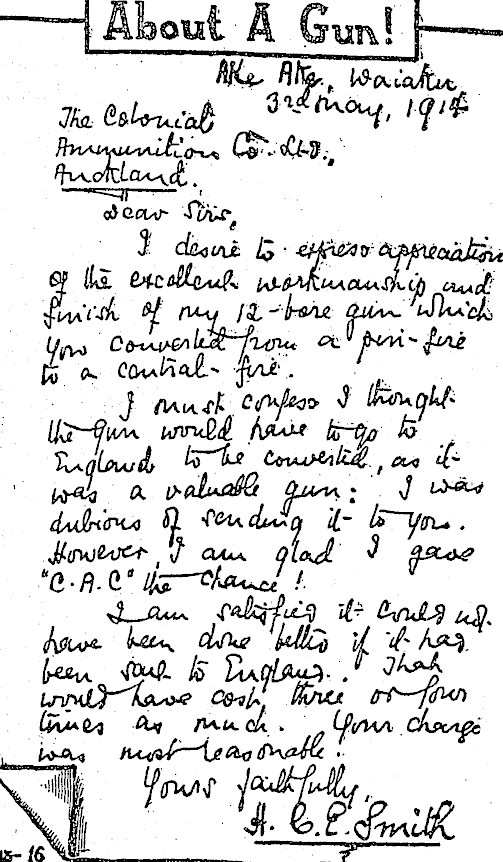 About A Gun!
Ake Ake, Waiatu
3rd May, 1914
The Colonial
Ammunition Co. Ltd.,
Auckland.
Dear Sirs,
I desire to express appreciation
of the excellent workmanship and
finish of my 12-bore gun which
you converted from a pin-fire
to a central-fire.
I must confess I thought
the gun would have to go to
England to be converted, as it
was a valuable gun: I was
dubious of sending it to you.
However, I am glad I gave
"C.A.C" the chance!
I am satisfied it could not
have been done better if it had
been sent to England. That
would have cost three or four
times as much. Your charge
was most reasonable!
Yours faithfully,
H. C. E. Smith
16